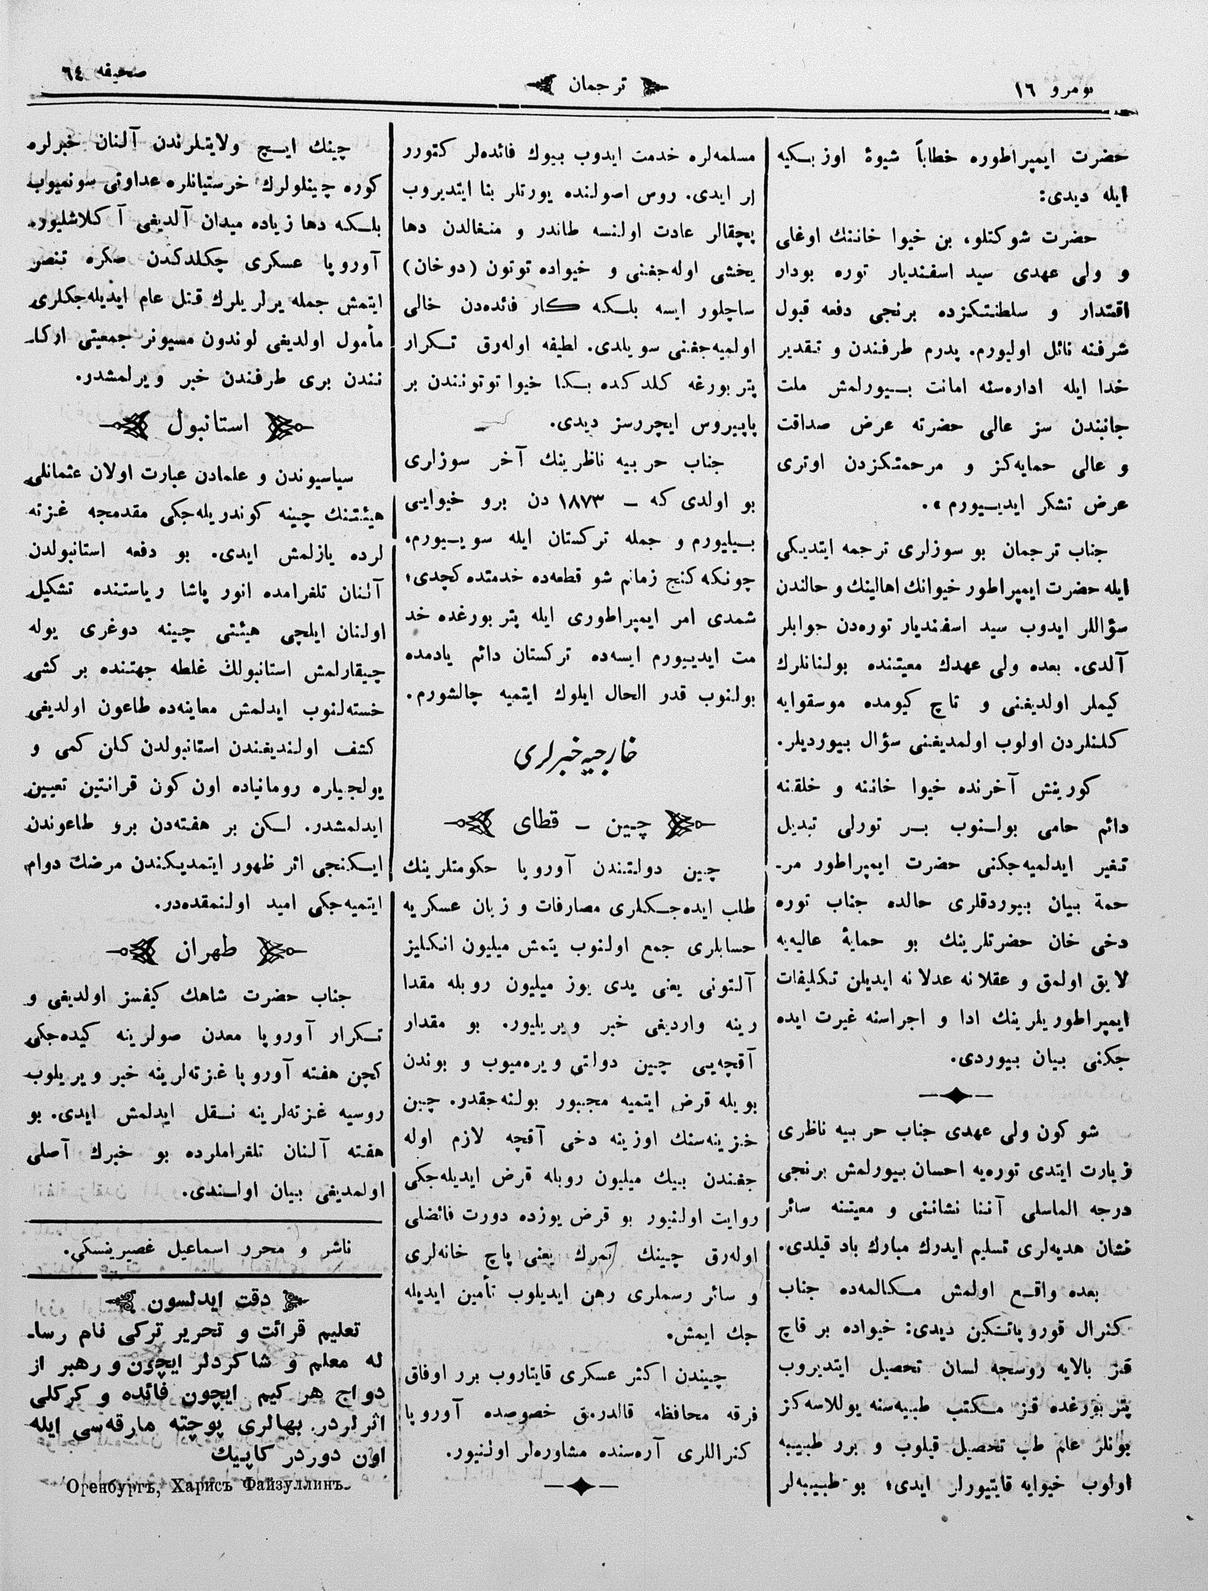 نومرو ١٦
ترجمان
صحيفه ٦٤
حضرت ايمپراطوره خطاباً شيوۀ اوزبكيه
ايله ديدى:
حضرت شوكتلو، بن خيوا خاننك اوغلى
و ولى عهدى سيد اسفنديار توره بودار
اقتدار و سلطنتكزده برنجى دفعه قبول
شرفنه نائل اوليورم. پدرم طرفندن و تقدير
خدا ايله ادارەسنه امانت بيورلمش ملت
جانبندن سز عالى حضرته عرض صداقت
و عالى حمايەكز و مرحمتكزدن اوترى
عرض تشكر ايديورم».
جناب ترجمان بو سوزلرى ترجمه ايتديكى
ايله حضرت ايمپراطور خيوانك اهالينك و حالندن
سؤاللر ايدوب سيد اسفنديار تورەدن جوابلر
آلدى. بعده ولى عهدك معيتنده بولنانلرك
كيملر اولديغنى و تاج كيومده موسقوايه
كلنلردن اولوب اولمديغنى سؤال بيورديلر.
كورينش آخرنده خيوا خاننه و خلقنه
دائم حامى بولنوب بر تورلى تبديل
تغير ايدلميەجكنى حضرت ايمپراطور مر-
حمة بيان بيوردقلرى حالده جناب توره
دخى خان حضرتلرينك بو حمايۀ عاليەيه
لايق اولمق و عقلانه عدلانه ايديلن تكليفات
ايمپراطوريلرينك ادا و اجراسنه غيرت ايده
جكنى بيان بيوردى.
شو كون ولى عهدى جناب حربيه ناظرى
زيارت ايتدى تورەيه احسان بيورلمش برنجى
درجه الماسلى آننا نشاننى و معيتنه سائر
نشان هديەلرى تسليم ايدرك مبارك باد قيلدى.
بعده واقع اولمش مكالمەده جناب
كنرال قوروپاتكين ديدى: خيواده بر قاچ
قز بالايه روسجه لسان تحصيل ايتديروب
پتربورغده قز مكتب طبيەسنه يوللاسەكز
بونلر عام طب تحصيل قيلوب و برر طبيبه
اولوب خيوايه قايتيورلر ايدى؛ بو طبيبەلر
مسلمەلره خدمت ايدوب بيوك فائدەلر كتورر
لر ايدى. روس اصولنده يورتلر بنا ايتديروب
پچقالر عادت اولنسه طاندر و منغالدن دها
يخشى اولەجغنى و خيواده توتون (دوخان)
ساچلور ايسه بلكه كار فائدەدن خالى
اولميەجغنى سويلدى. لطيفه اولەرق تكرار
پتربورغه كلدكده بكا خيوا توتونندن بر
پاپيروس ايچررسز ديدى.
جناب حربيه ناظرينك آخر سوزلرى
بو اولدى كه — ١٨٧٣ دن برو خيوايى
بيليورم و جمله تركستان ايله سويورم.
چونكه كنج زمانم شو قطعەده خدمتده كچدى؛
شمدى امر ايمپراطورى ايله پتربورغده خد
مت ايديورم ايسەده تركستان دائم يادمده
بولنوب قدر الحال ايلوك ايتميه چالشورم.
خارجيه خبرلرى
چين — قطاى
چين دولتندن آوروپا حكومتلرينك
طلب ايدەجكلرى مصارفات و زيان عسكريه
حسابلرى جمع اولنوب يتمش ميليون انكليز
آلتونى يعنى يدى يوز ميليون روبله مقدا
رينه وارديغى خبر ويريليور. بو مقدار
آقچەيى چين دولتى ويرەميوب و بوندن
بويله قرض ايتميه مجبور بولنەجقدر. چين
خزينەسنك اوزينه دخى آقچه لازم اوله
جغندن بيك ميليون روبله قرض ايديلەجكى
روايت اولنيور بو قرض يوزده دورت فائضلى
اولەرق چينك كمرك يعنى پاچ خانەلرى
و سائر رسملرى رهن ايديلوب تأمين ايديله
جك ايمش.
چيندن اكثر عسكرى قايتاروب برر اوفاق
فرقه محافظه قالدرمق خصوصده آوروپا
كنراللرى آرەسنده مشاورەلر اولنيور.
چينك ايچ ولايتلرندن آلنان خبرلره
كوره چينلولرك خرستيانلره عداوتى سونميوب
بلكه دها زياده ميدان آلديغى آكلاشليور.
آوروپا عسكرى چكلدكدن صكره تنصر
ايتمش جمله يرلريلرك قتل عام ايديلەجكلرى
مأمول اولديغى لوندون مسيونر جمعيتى اركا
نندن برى طرفندن خبر ويرلمشدر.
استانبول
سياسيوندن و علمادن عبارت اولان عثمانلى
هيئتنك چينه كوندريلەجكى مقدمجه غزته
لرده يازلمش ايدى. بو دفعه استانبولدن
آلنان تلغرامده انور پاشا رياستنده تشكيل
اولنان ايلچى هيئتى چينه دوغرى يوله
چيقارلمش استانبولڭ غلطه جهتنده بر كشى
خستەلنوب ايدلمش معاينەده طاعون اولديغى
كشف اولنديغندن استانبولدن كلن كمى و
يولجيلره رومانياده اون كون قرانتين تعيين
ايدلمشدر. لكن بر هفتەدن برو طاعوندن
ايكنجى اثر ظهور ايتمديكندن مرضك دوام
ايتميەجكى اميد اولنمقدەدر.
طهران
جناب حضرت شاهك كيفسز اولديغى و
تكرار آوروپا معدن صولرينه كيدەجكى
كچن هفته آوروپا غزتەلرينه خبر ويريلوب
روسيه غزتەلرينه نقل ايدلمش ايدى. بو
هفته آلنان تلغراملرده بو خبرك آصلى
اولمديغى بيان اولندى.
ناشر و محرر اسماعيل غصپرينسكى.
دقت ايدلسون
تعليم قرائت و تحرير تركى نام رسا-
له معلم و شاكردلر ايچون و رهبر از
دواج هر كيم ايچون فائده و كركلى
اثرلردر. بهالرى پوچته مارقەسى ايله
اون دوردر كاپيك
Оренбургъ, Харисъ Файзуллинъ.